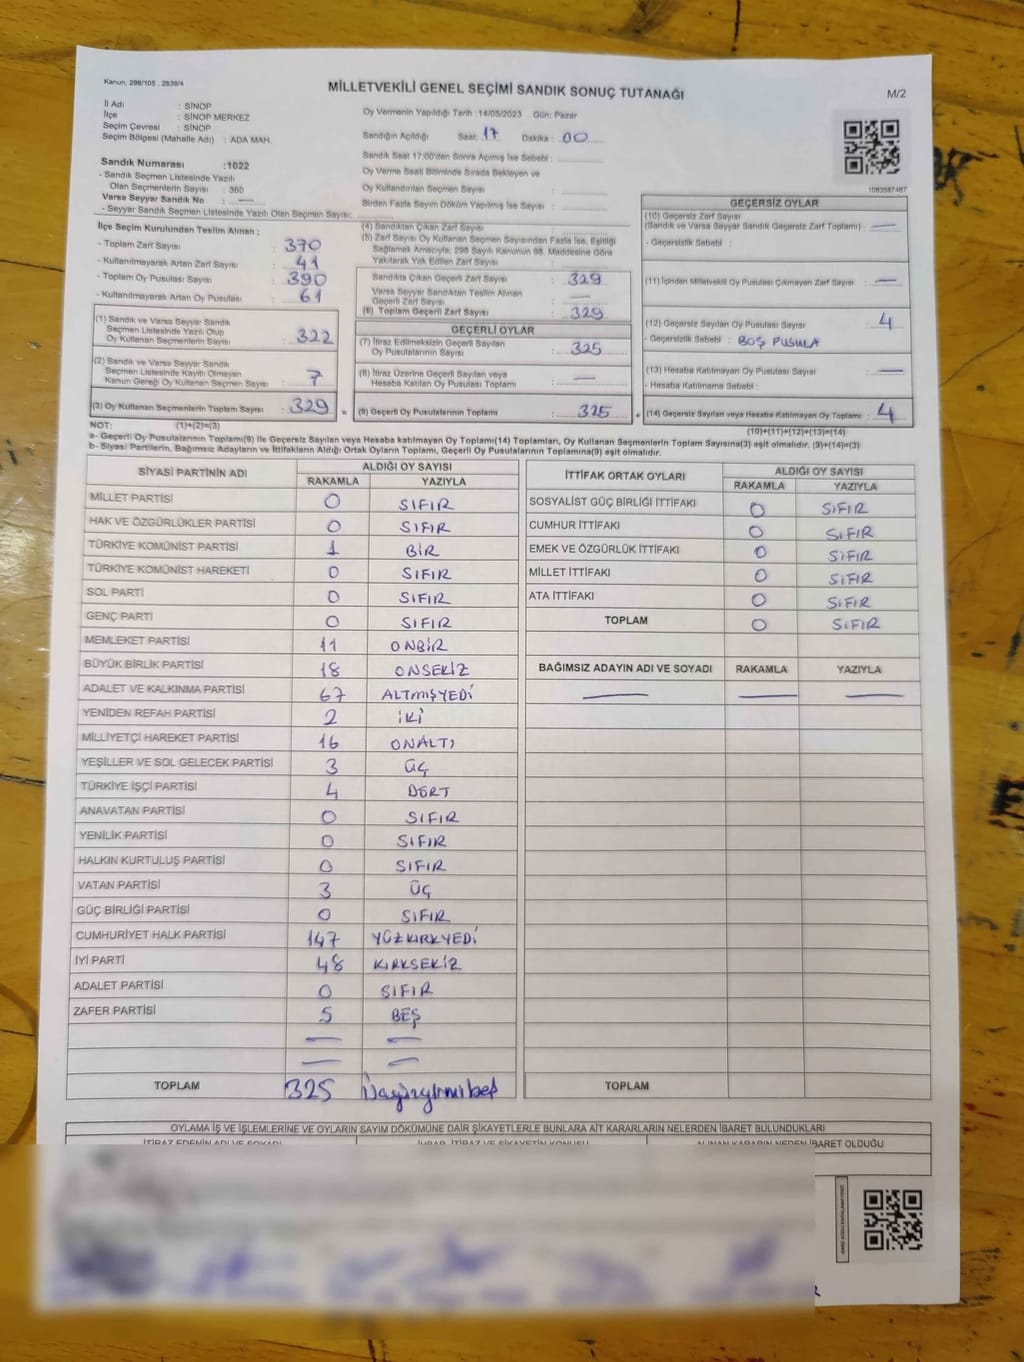 Kanun: 298/105 , 2839/4
MİLLETVEKİLİ GENEL SEÇİMİ SANDIK SONUÇ TUTANAĞI
M/2
İl Adı : SİNOP
İlçe : SİNOP MERKEZ
Seçim Çevresi : SİNOP
Seçim Bölgesi (Mahalle Adı) : ADA MAH.
Sandık Numarası :1022
- Sandık Seçmen Listesinde Yazılı
Olan Seçmenlerin Sayısı : 360
Varsa Seyyar Sandık No : —
- Seyyar Sandık Seçmen Listesinde Yazılı Olan Seçmen Sayısı:
Oy Vermenin Yapıldığı Tarih :14/05/2023 Gün: Pazar
Sandığın Açıldığı Saat: 17 Dakika : 00
Sandık Saat 17:00'den Sonra Açılmış İse Sebebi :
Oy Verme Saati Bitiminde Sırada Bekleyen ve
Oy Kullandırılan Seçmen Sayısı :
Birden Fazla Sayım Döküm Yapılmış İse Sayısı :
1083587487
İlçe Seçim Kurulundan Teslim Alınan ;
- Toplam Zarf Sayısı : 370
- Kullanılmayarak Artan Zarf Sayısı : 41
- Toplam Oy Pusulası Sayısı : 390
- Kullanılmayarak Artan Oy Pusulası : 61
(1) Sandık ve Varsa Seyyar Sandık
Seçmen Listesinde Yazılı Olup
Oy Kullanan Seçmenlerin Sayısı : 322
(2) Sandık ve Varsa Seyyar Sandık
Seçmen Listesinde Kayıtlı Olmayan
Kanun Gereği Oy Kullanan Seçmen Sayısı : 7
(3) Oy Kullanan Seçmenlerin Toplam Sayısı : 329 =
(4) Sandıktan Çıkan Zarf Sayısı :
(5) Zarf Sayısı Oy Kullanan Seçmen Sayısından Fazla İse, Eşitliği
Sağlamak Amacıyla; 298 Sayılı Kanunun 98. Maddesine Göre
Yakılarak Yok Edilen Zarf Sayısı :
Sandıkta Çıkan Geçerli Zarf Sayısı : 329
Varsa Seyyar Sandıktan Teslim Alınan
Geçerli Zarf Sayısı : —
(6) Toplam Geçerli Zarf Sayısı : 329
GEÇERLİ OYLAR
(7) İtiraz Edilmeksizin Geçerli Sayılan
Oy Pusulalarının Sayısı : 325
(8) İtiraz Üzerine Geçerli Sayılan veya
Hesaba Katılan Oy Pusulası Toplamı : —
(9) Geçerli Oy Pusulalarının Toplamı : 325 +
GEÇERSİZ OYLAR
(10) Geçersiz Zarf Sayısı
(Sandık ve Varsa Seyyar Sandık Geçersiz Zarf Toplamı) : —
- Geçersizlik Sebebi :
(11) İçinden Milletvekili Oy Pusulası Çıkmayan Zarf Sayısı : —
(12) Geçersiz Sayılan Oy Pusulası Sayısı : 4
- Geçersizlik Sebebi : BOŞ PUSULA
(13) Hesaba Katılmayan Oy Pusulası Sayısı : —
- Hesaba Katılmama Sebebi :
(14) Geçersiz Sayılan veya Hesaba Katılmayan Oy Toplamı : 4
NOT: (1)+(2)=(3) (10)+(11)+(12)+(13)=(14)
a- Geçerli Oy Pusulalarının Toplamı(9) ile Geçersiz Sayılan veya Hesaba katılmayan Oy Toplamı(14) Toplamları, Oy Kullanan Seçmenlerin Toplam Sayısına(3) eşit olmalıdır. (9)+(14)=(3)
b- Siyasi Partilerin, Bağımsız Adayların ve İttifakların Aldığı Ortak Oyların Toplamı, Geçerli Oy Pusulalarının Toplamına(9) eşit olmalıdır.
SİYASİ PARTİNİN ADI ALDIĞI OY SAYISI
RAKAMLA YAZIYLA
MİLLET PARTİSİ 0 SIFIR
HAK VE ÖZGÜRLÜKLER PARTİSİ 0 SIFIR
TÜRKİYE KOMÜNİST PARTİSİ 1 BİR
TÜRKİYE KOMÜNİST HAREKETİ 0 SIFIR
SOL PARTİ 0 SIFIR
GENÇ PARTİ 0 SIFIR
MEMLEKET PARTİSİ 11 ONBİR
BÜYÜK BİRLİK PARTİSİ 18 ONSEKİZ
ADALET VE KALKINMA PARTİSİ 67 ALTMIŞYEDİ
YENİDEN REFAH PARTİSİ 2 İKİ
MİLLİYETÇİ HAREKET PARTİSİ 16 ONALTI
YEŞİLLER VE SOL GELECEK PARTİSİ 3 ÜÇ
TÜRKİYE İŞÇİ PARTİSİ 4 DÖRT
ANAVATAN PARTİSİ 0 SIFIR
YENİLİK PARTİSİ 0 SIFIR
HALKIN KURTULUŞ PARTİSİ 0 SIFIR
VATAN PARTİSİ 3 ÜÇ
GÜÇ BİRLİĞİ PARTİSİ 0 SIFIR
CUMHURİYET HALK PARTİSİ 147 YÜZKIRKYEDİ
İYİ PARTİ 48 KIRKSEKİZ
ADALET PARTİSİ 0 SIFIR
ZAFER PARTİSİ 5 BEŞ
— —
— —
TOPLAM 325 Üçyüzyirmibeş
İTTİFAK ORTAK OYLARI ALDIĞI OY SAYISI
RAKAMLA YAZIYLA
SOSYALİST GÜÇ BİRLİĞİ İTTİFAKI 0 SIFIR
CUMHUR İTTİFAKI 0 SIFIR
EMEK VE ÖZGÜRLÜK İTTİFAKI 0 SIFIR
MİLLET İTTİFAKI 0 SIFIR
ATA İTTİFAKI 0 SIFIR
TOPLAM 0 SIFIR
BAĞIMSIZ ADAYIN ADI VE SOYADI RAKAMLA YAZIYLA
— — —
TOPLAM
OYLAMA İŞ VE İŞLEMLERİNE VE OYLARIN SAYIM DÖKÜMÜNE DAİR ŞİKAYETLERLE BUNLARA AİT KARARLARIN NELERDEN İBARET BULUNDUKLARI
İTİRAZ EDENİN ADI VE SOYADI İHBAR, İTİRAZ VE ŞİKAYETİN KONUSU ALINAN KARARIN NEDEN İBARET OLDUĞU